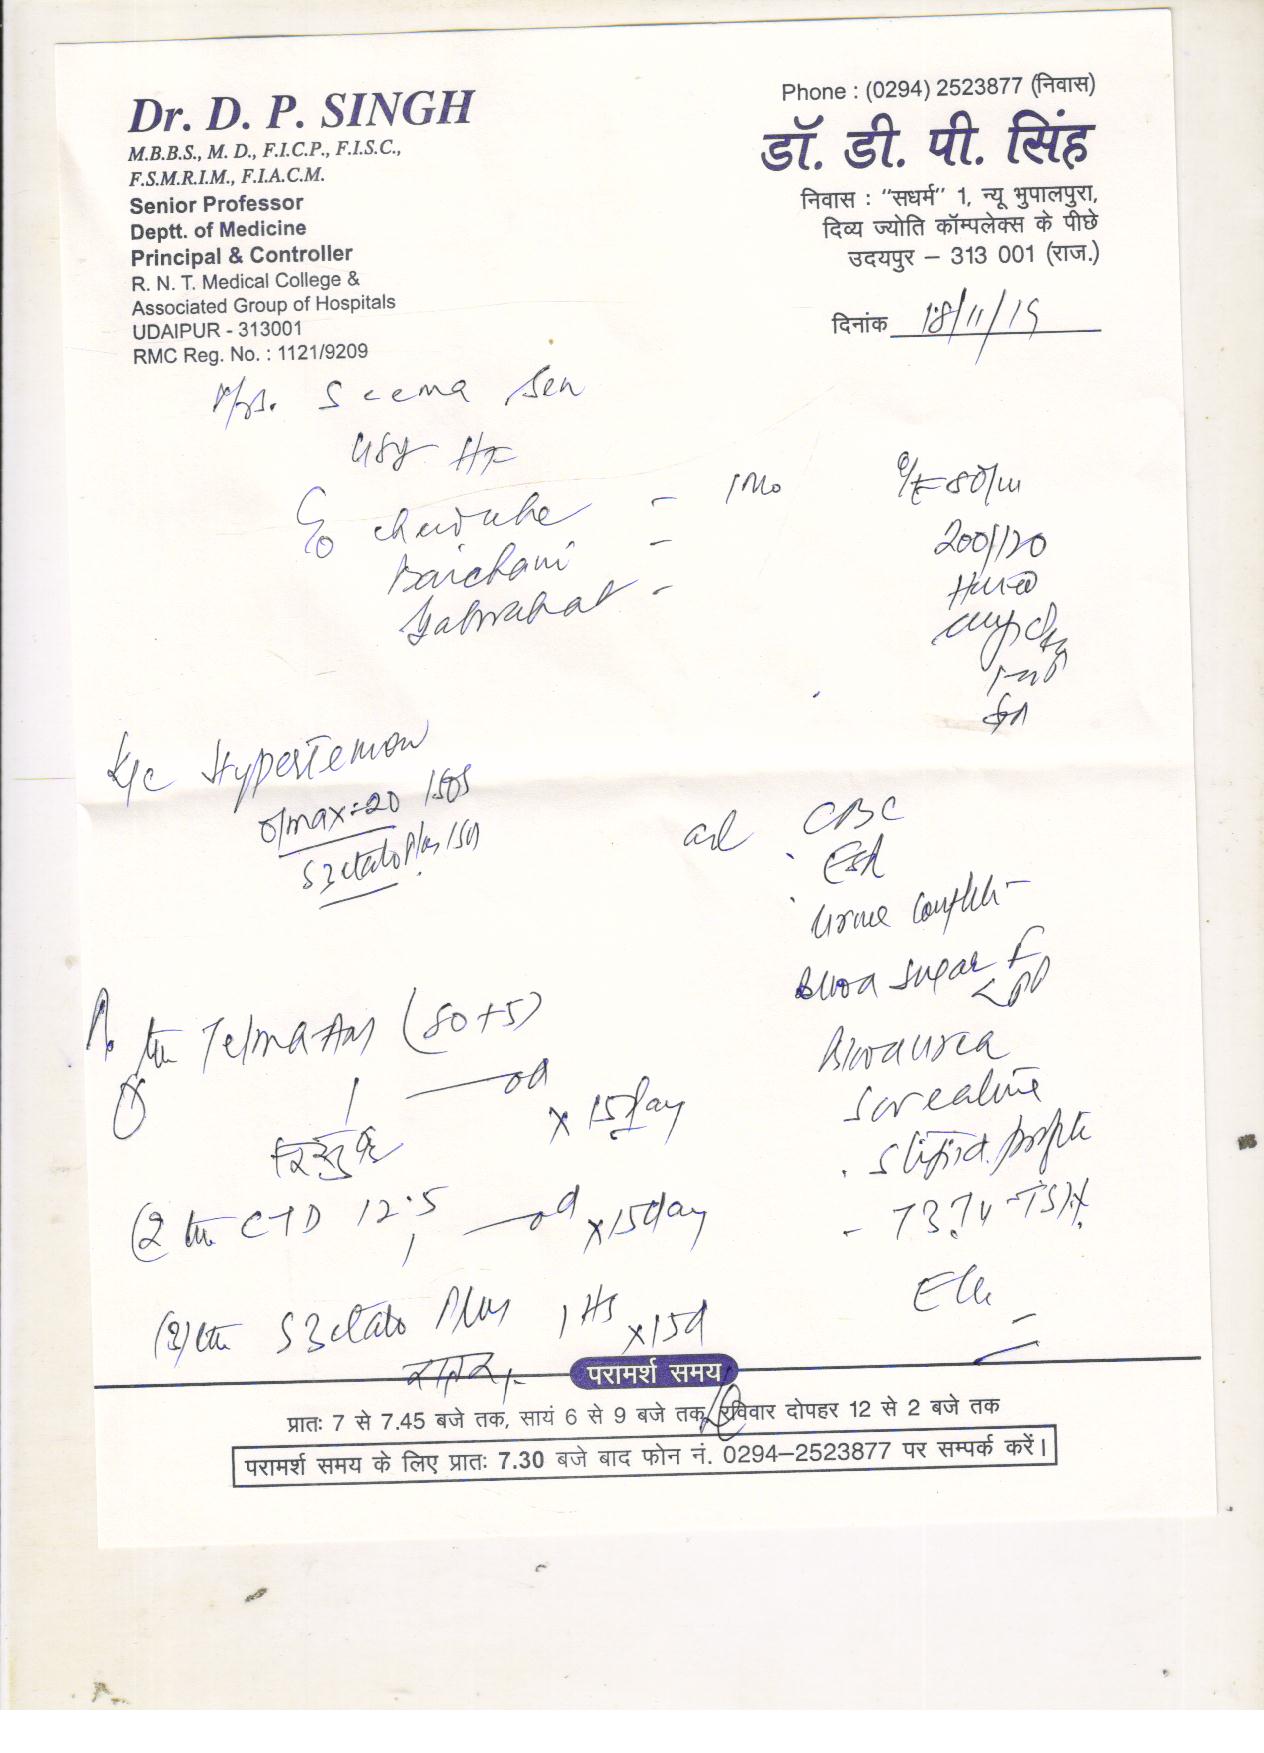 Dr. D. P. SINGH
M.B.B.S., M. D., F.I.C.P., F.I.S.C.,
F.S.M.R.I.M., F.I.A.C.M.
Senior Professor
Deptt. of Medicine
Principal & Controller
R. N. T. Medical College &
Associated Group of Hospitals
UDAIPUR - 313001
RMC Reg. No. : 1121/9209
Phone : (0294) 2523877 (निवास)
डॉ. डी. पी. सिंह
निवास : “सधर्म” 1, न्यू भुपालपुरा,
दिव्य ज्योति कॉम्पलेक्स के पीछे
उदयपुर – 313 001 (राज.)
दिनांक 18/11/19
Mrs. Seema Sen
C/o
1 Mo
Baichani
Gabrahat
O/E 80/m
200/120
K/c Hypertension
Olmax-20
S3etalo Plus 15d
ad CBC
ESR
Urine Complete
Blood Sugar F
PP
Blood urea
S creatinine
S lipid profile
T3 T4 TSH
Rx
Telma Am (80+5)
1 — od
x 15 day
सुबह
(2 CTD 12.5
1 — od x 15 day
(3) S3etalo Plus 1 HS x 15d
परामर्श समय
प्रातः 7 से 7.45 बजे तक, सायं 6 से 9 बजे तक, रविवार दोपहर 12 से 2 बजे तक
परामर्श समय के लिए प्रातः 7.30 बजे बाद फोन नं. 0294–2523877 पर सम्पर्क करें।